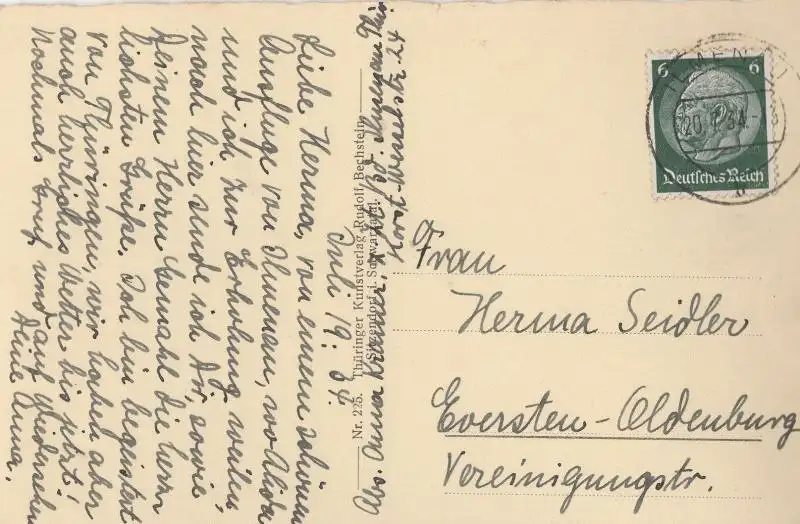 Juli 19. 34.
Liebe Herma, von einem schönen
Ausfluge von Ilmenau, wo Alida
und ich zur Erholung weilen
nach hier sende ich Dir, sowie
Deinem Herrn Gemahl die herz-
lichsten Grüße. Ich bin begeistert
von Thüringen, wir haben aber
auch herrliches Wetter bis jetzt!
Nochmals Gruß und auf Wiedersehen
Deine Anna.
Nr. 225. Thüringer Kunstverlag Rudolf Bechstein,
Sitzendorf i. Schwarzatal.
Abs. Anna Krämer, Ilmenau Thür.
Horst-Wesselstr. 24
6 6
Deutsches Reich
ILMENAU
20. 7. 34.
b
Frau
Herma Seidler
Eversten-Oldenburg
Vereinigungstr.